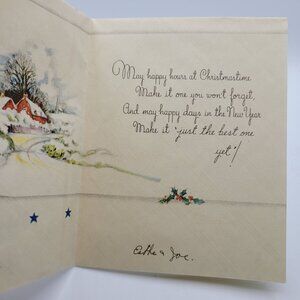 May happy hours at Christmastime
Make it one you won't forget,
And may happy days in the New Year
Make it "just the best one
yet"!
& Joe.